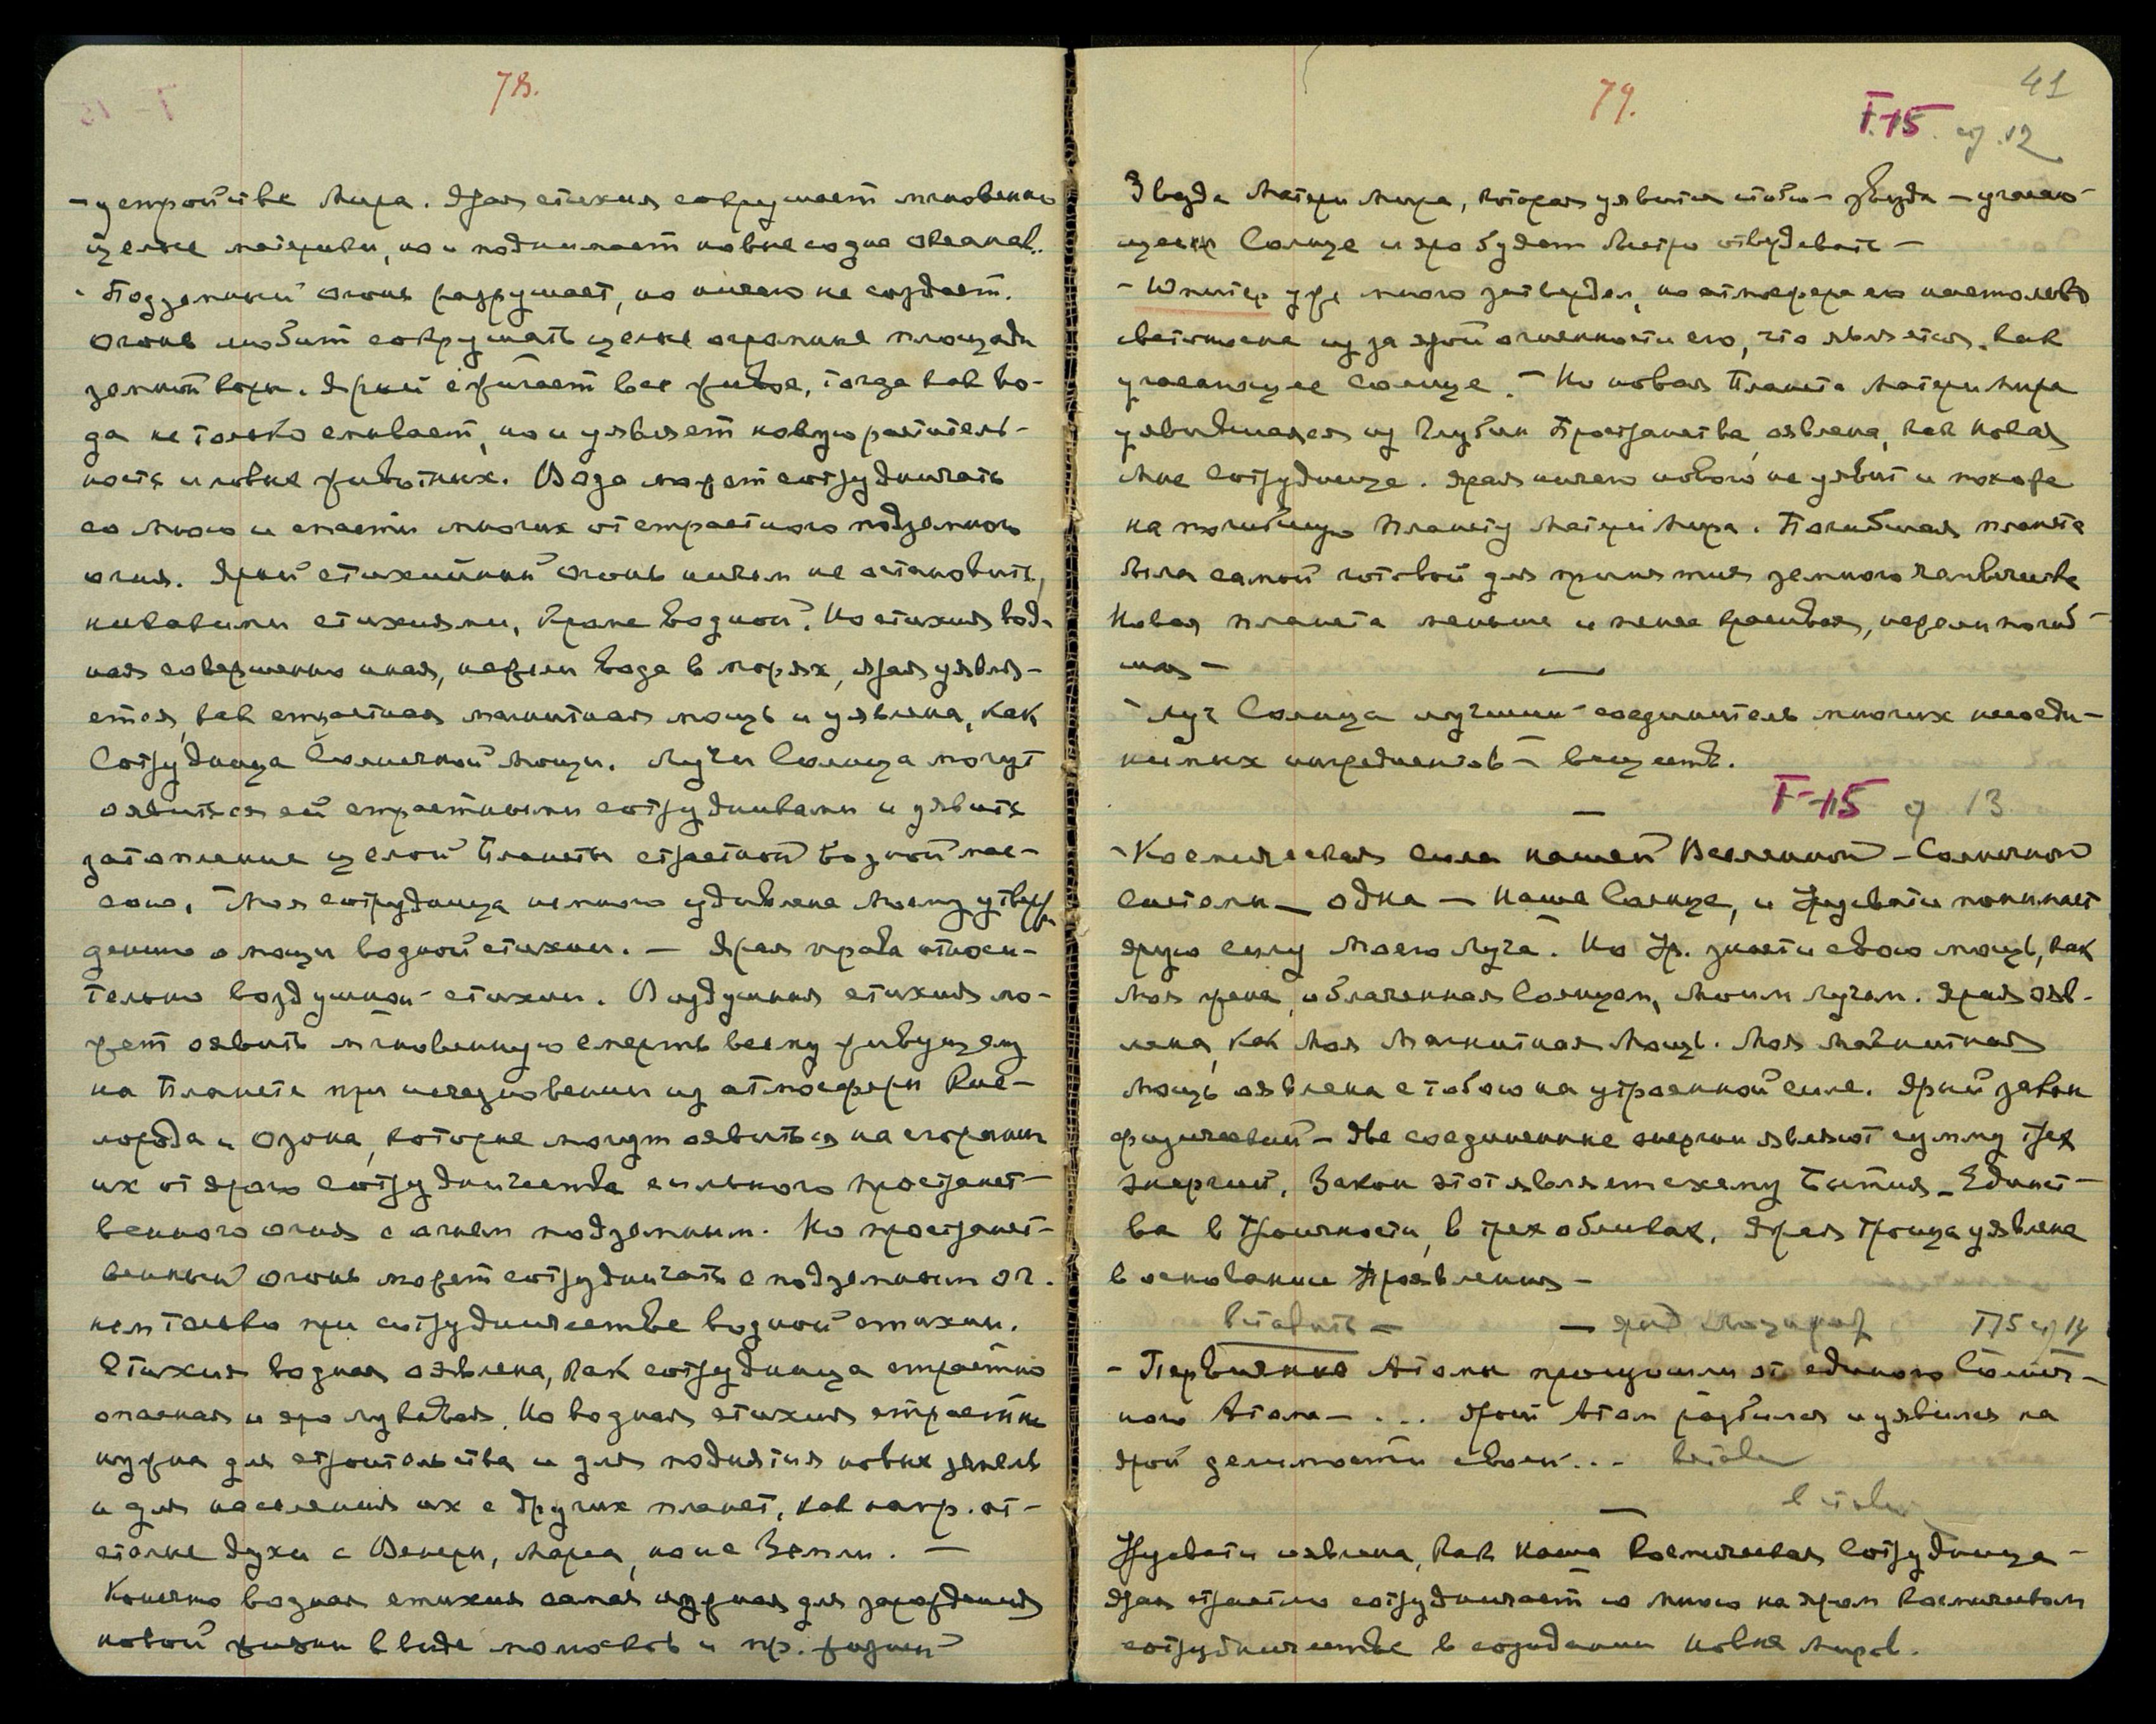 78.
-устройстве Мира. Ярая стихия сокрушает мгновенно
целые материки, но и поднимает новые со дна Океанов.
- Подземный огонь разрушает, но ничего не создает.
Огонь любит сокрушать целые огромные площади
земной коры. Ярый сжигает все живое, тогда как во-
да не только смывает, но и уявляет новую раститель-
ность и новые животных. Вода может сотрудничать
со Мною и спасти многих от страстного подземного
огня. Ярый стихийный огонь ничем не остановить,
никакими стихиями, кроме водной. Но стихия вод-
ная совершенно иная, нежели вода в морях, ярая уявля-
ется, как страстная магнитная мощь и уявлена, как
Сотрудница Солнечной Мощи. Лучи Солнца могут
оявиться ей страстными сотрудниками и уявить
затопление целой Планеты страстной водной мас-
сою. Моя сотрудница немного удивлена Моему утверж-
дению о мощи водной стихии. — Ярая права относи-
тельно воздушной стихии. Воздушная стихия мо-
жет оявить мгновенную смерть всему живущему
на Планете при исчезновении из атмосферы Кис-
лорода и Озона, которые могут оявиться на сгорании
их от ярого сотрудничества сильного пространст-
венного огня с огнем подземным. Но пространст-
венный огонь может сотрудничать с подземным ог-
нем только при сотрудничестве водной стихии.
Стихия водная оявлена, как сотрудница страстно
опасная и яро лукавая. Но водная стихия страстно
нужна для строительства и для поднятия новых земель
и для населения их с других планет, как напр. от-
сталые духи с Венеры, Марса, но не Земли. —
Конечно водная стихия самая нужная для зарождения
новой жизни в виде моносков и пр. жизней
79.
41
Т.-15. стр. 12
Звезда Матери Мира, которая уявится
Солнце и яро будет Мир
- Юпитер уже много затвердел, но атмосфера его настолько
светоносна из за ярой огненности его, что является, как
угасающее Солнце. - Но новая Планета Матери Мира
уявившаяся из Глубин Пространства, оявлена, как Новая
Мне Сотрудница. Ярая ничего нового не уявит и похожа
на погибшую Планету Матери Мира. Погибшая планета
была самой готовой для принятия земного человечества
Новая планета меньше и менее красивая, нежели погиб-
шая -
- Луч Солнца лучший соединитель многих несоеди-
нимых ингредиентов - веществ.
Т-15 стр. 13
- Космическая сила нашей Вселенной - Солнечной
системы - одна - Наше Солнце, и Урусвати понимает
ярую силу Моего Луча. Но Ур. знает и свою мощь, как
Моя жена, облаченная Солнцем, Моим лучом. Ярая ояв-
лена, как Моя Магнитная Мощь. Моя Магнитная
Мощь оявлена с тобою на утроенной силе. Ярый закон
физический - две соединенные энергии являют сумму трех
энергий. Закон этот являет схему Бытия - Единст-
ва в Троичности, в трех обликах. Ярая Троица уявлена
в основание Проявления -
вставить — Т15 стр 14
- Первичные Атомы произошли от единого Солнеч-
ного Атома - ... Ярый Атом разбился и уявился на
ярой делимости своей...
Урусвати оявлена, как Наша Космическая Сотрудница -
Ярая страстно сотрудничает со Мною на яром космическом
сотрудничестве в создании Новых Миров.